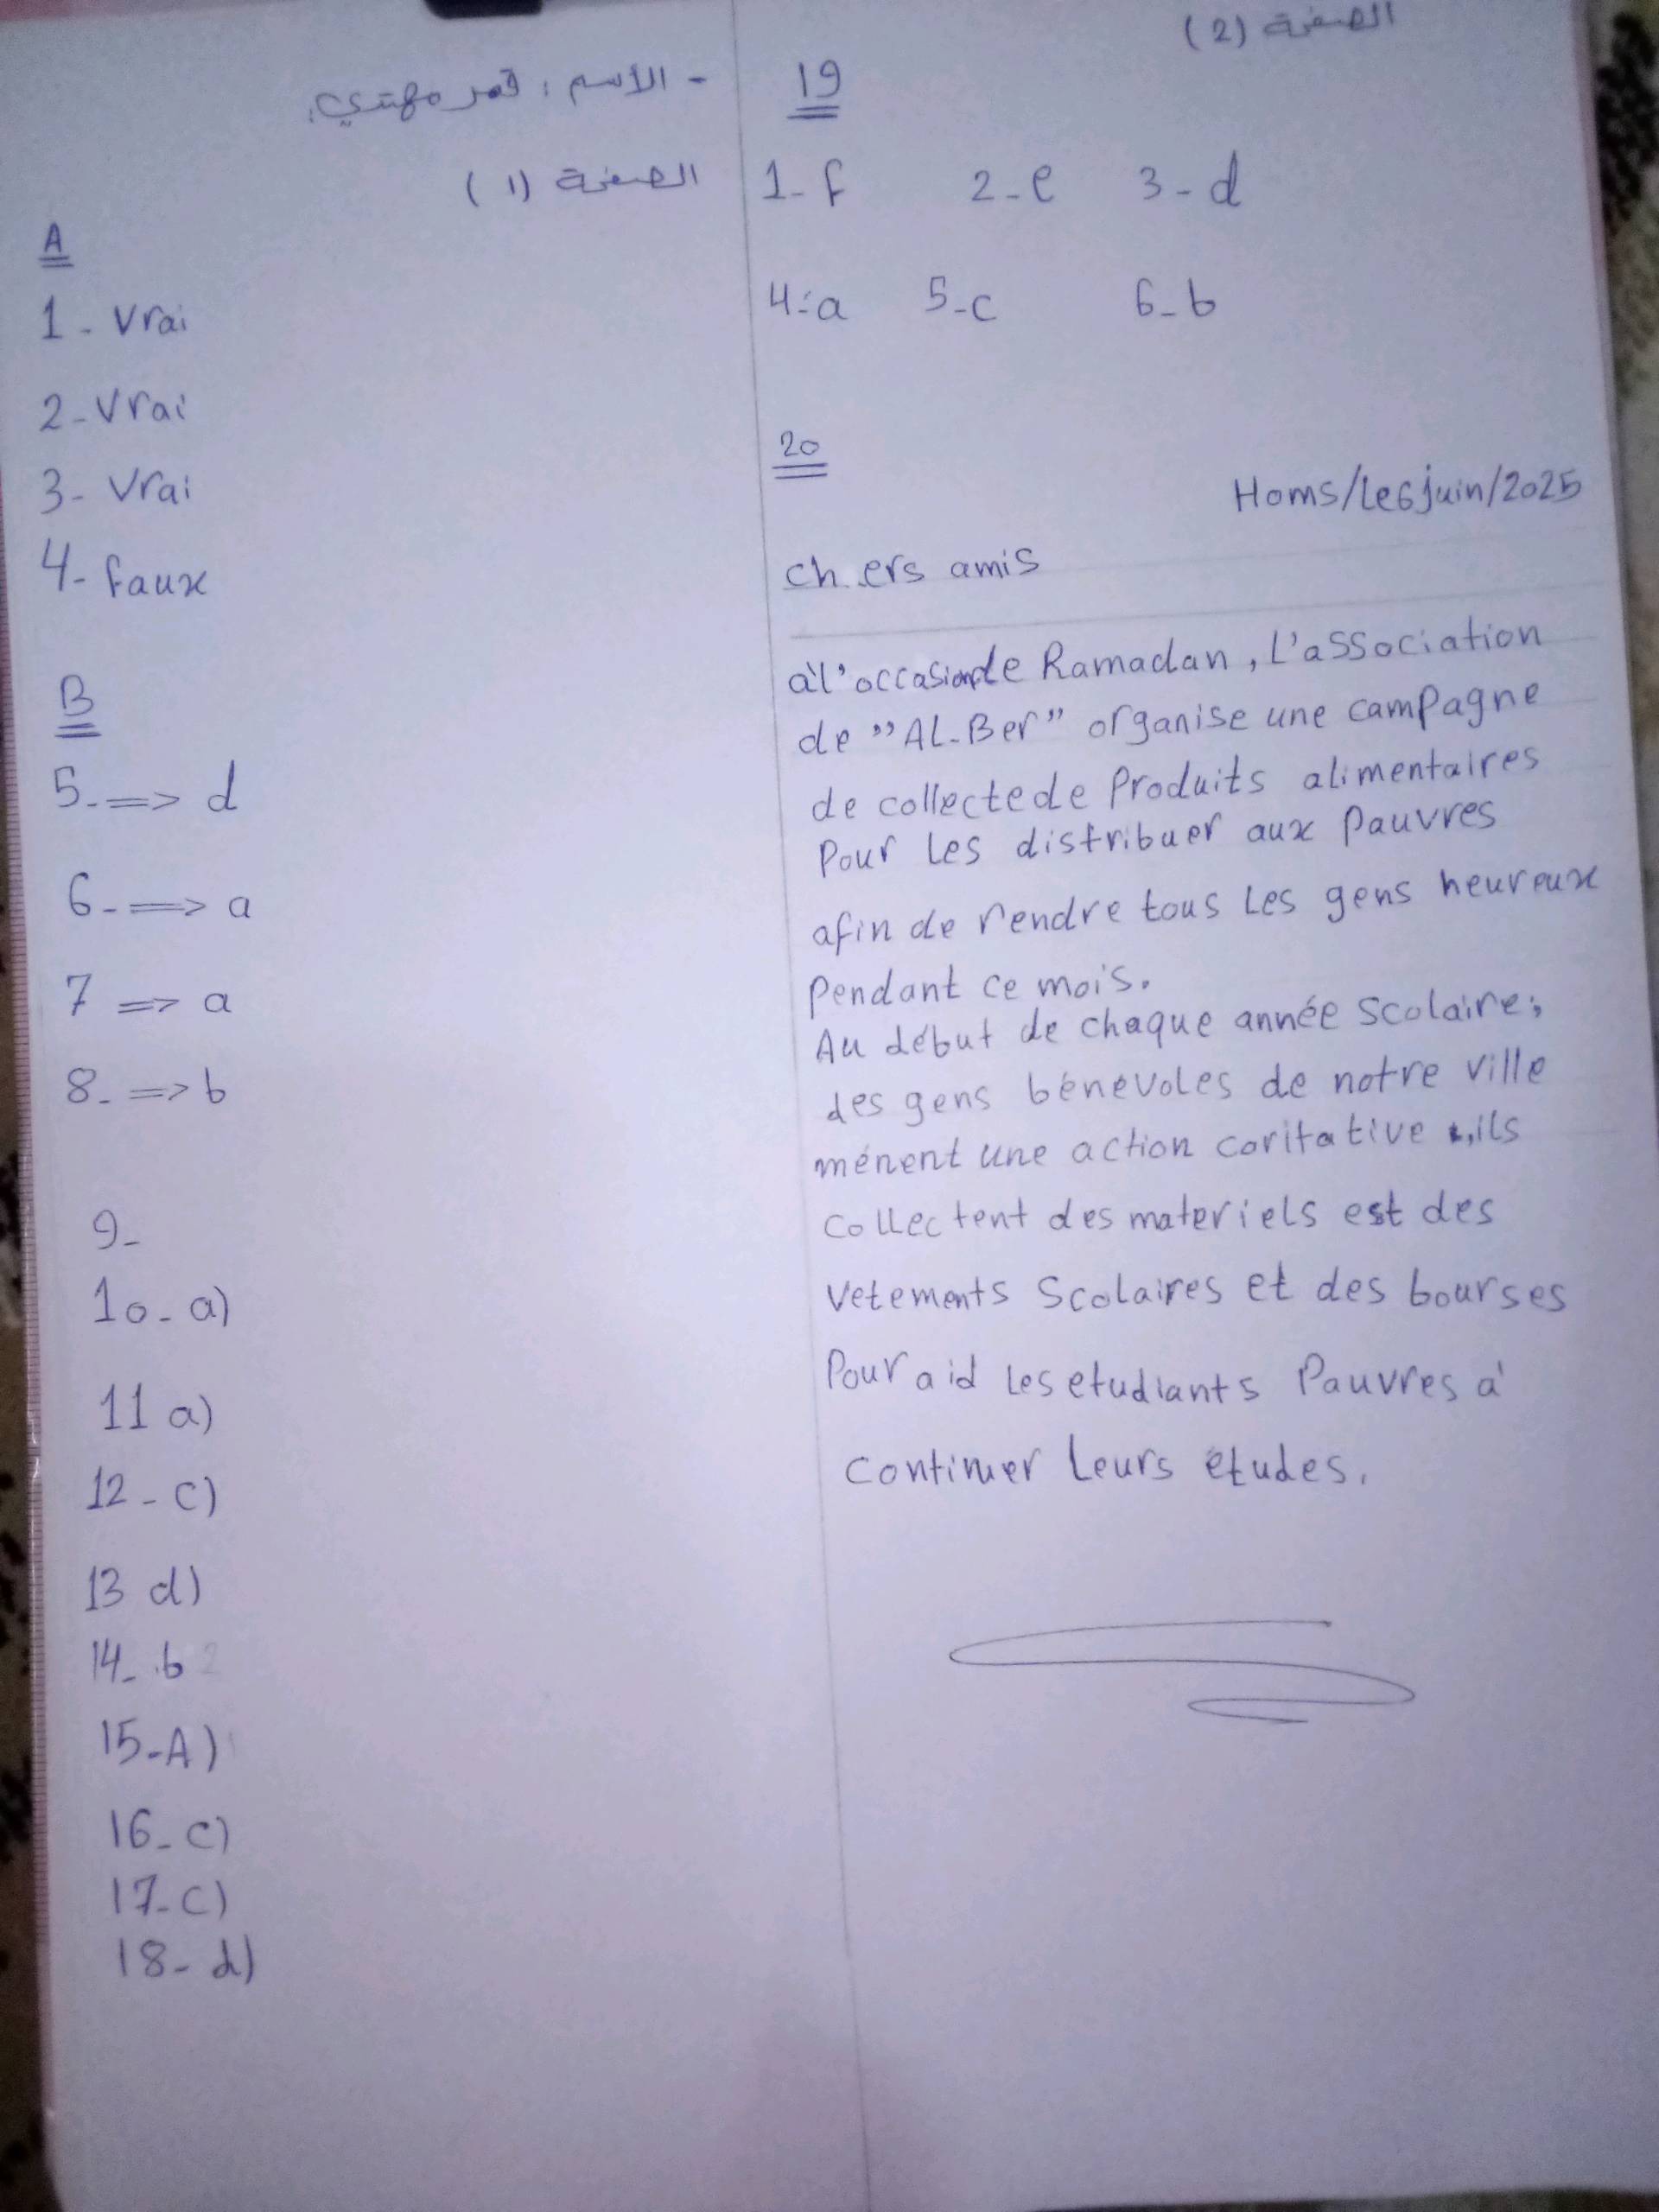 - الأسم : قمر مهتدي.
الصفحة (1)
A
1- Vrai
2- Vrai
3- Vrai
4- faux
B
5- => d
6- => a
7 => a
8- => b
9-
10- a)
11 a)
12- c)
13 d)
14- b
15- A)
16- c)
17- c)
18- d)
الصفحة (2)
19
1- f 2- e 3- d
4- a 5- c 6- b
20
Homs/Le6juin/2025
chers amis
à l'occasionde Ramadan, L'association
de "AL-Ber" organise une campagne
de collectede Produits alimentaires
Pour Les distribuer aux Pauvres
afin de rendre tous Les gens heureux
Pendant ce mois.
Au début de chaque année scolaire,
des gens bénévoles de notre ville
ménent une action caritative, ils
collectent des materiels est des
vetements Scolaires et des bourses
Pour aid Les etudiants Pauvres à
continuer Leurs études.